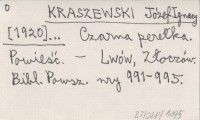 0
KRASZEWSKI Józef Ignacy
[1920]... Czarna perełka.
Powieść. – Lwów, Złoczów.
Bibl. Powsz. nry 991-995.